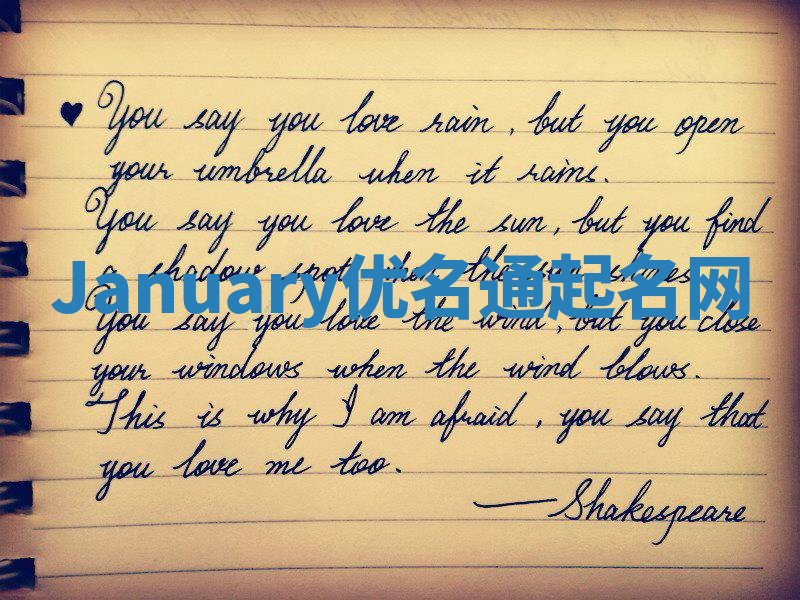 ♥ You say you love rain, but you open
your umbrella when it rains.
You say you love the sun, but you find
a shadow spot when the sun shines.
January优名通起名网
You say you love the wind, but you close
your windows when the wind blows.
This is why I am afraid, you say that
you love me too.
—Shakespeare